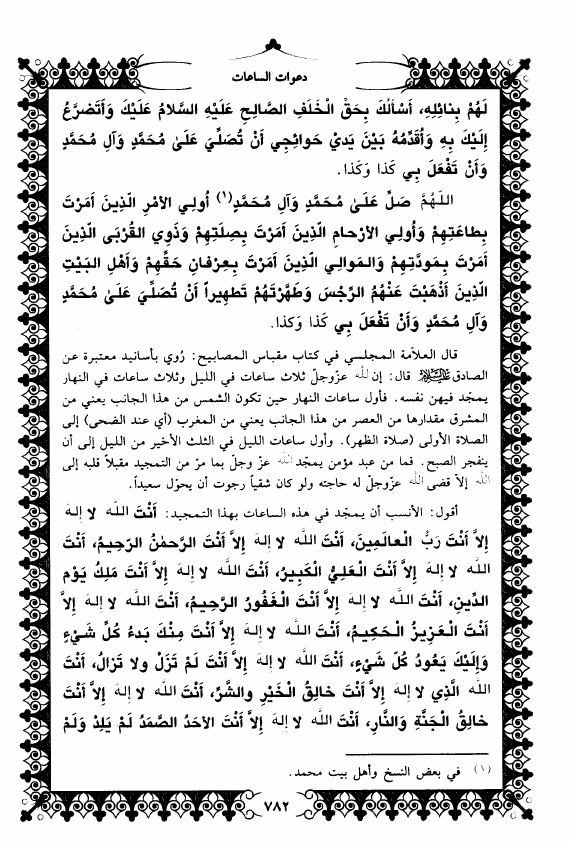 دعوات الساعات
لَهُمْ بِنائِلِهِ، أَسْأَلُكَ بِحَقِّ الْخَلَفِ الصّالِحِ عَلَيْهِ السَّلامُ عَلَيْكَ وَأَتَضَرَّعُ
إِلَيْكَ بِهِ وَأُقَدِّمُهُ بَيْنَ يَدَيْ حَوائِجِي أَنْ تُصَلِّيَ عَلَىٰ مُحَمَّدٍ وَآلِ مُحَمَّدٍ
وَأَنْ تَفْعَلَ بِي كَذا وَكَذا.
اللهُمَّ صَلِّ عَلَىٰ مُحَمَّدٍ وَآلِ مُحَمَّدٍ(١) أُولِي الأَمْرِ الَّذِينَ أَمَرْتَ
بِطاعَتِهِمْ وَأُولِي الأَرْحامِ الَّذِينَ أَمَرْتَ بِصِلَتِهِمْ وَذَوِي القُرْبَى الَّذِينَ
أَمَرْتَ بِمَوَدَّتِهِمْ وَالمَوالِي الَّذِينَ أَمَرْتَ بِعِرْفانِ حَقِّهِمْ وَأَهْلِ البَيْتِ
الَّذِينَ أَذْهَبْتَ عَنْهُمُ الرِّجْسَ وَطَهَّرْتَهُمْ تَطْهِيراً أَنْ تُصَلِّيَ عَلَىٰ مُحَمَّدٍ
وَآلِ مُحَمَّدٍ وَأَنْ تَفْعَلَ بِي كَذا وَكَذا.
قال العلاّمة المجلسي في كتاب مقباس المصابيح: رُوي بأسانيد معتبرة عن
الصادق عليه السلام قال: إن لله عزّوجلّ ثلاث ساعات في الليل وثلاث ساعات في النهار
يمجّد فيهن نفسه. فأول ساعات النهار حين تكون الشمس من هذا الجانب يعني من
المشرق مقدارها من العصر من هذا الجانب يعني من المغرب (أي عند الضحى) إلى
الصلاة الأولى (صلاة الظهر). وأول ساعات الليل في الثلث الأخير من الليل إلى أن
ينفجر الصبح. فما من عبد مؤمن يمجّد الله عزّ وجلّ بما مرّ من التمجيد مقبلاً قلبه إلى
الله إلاّ قضى الله عزّوجلّ له حاجته ولو كان شقياً رجوت أن يحوّل سعيداً.
أقول: الأنسب أن يمجّد في هذه الساعات بهذا التمجيد: أَنْتَ الله لا إلهَ
إِلاَّ أَنْتَ رَبُّ الْعالَمِينَ، أَنْتَ الله لا إلهَ إِلاَّ أَنْتَ الرَّحْمٰنُ الرَّحِيمُ، أَنْتَ
الله لا إلهَ إِلاَّ أَنْتَ الْعَلِيُّ الْكَبِيرُ، أَنْتَ الله لا إلهَ إِلاَّ أَنْتَ مَلِكُ يَوْمِ
الدِّينِ، أَنْتَ الله لا إلهَ إِلاَّ أَنْتَ الْغَفُورُ الرَّحِيمُ، أَنْتَ الله لا إلهَ إِلاَّ
أَنْتَ الْعَزِيزُ الْحَكِيمُ، أَنْتَ الله لا إلهَ إِلاَّ أَنْتَ مِنْكَ بَدءُ كُلِّ شَيْءٍ
وَإِلَيْكَ يَعُودُ كُلُّ شَيْءٍ، أَنْتَ الله لا إلهَ إِلاَّ أَنْتَ لَمْ تَزَلْ ولا تَزالُ، أَنْتَ
الله الَّذِي لا إلهَ إِلاَّ أَنْتَ خالِقُ الْخَيْرِ والشَّرِّ، أَنْتَ الله لا إلهَ إِلاَّ أَنْتَ
خالِقُ الْجَنَّةِ وَالنَّارِ، أَنْتَ الله لا إلهَ إِلاَّ أَنْتَ الأَحَدُ الصَّمَدُ لَمْ يَلِدْ وَلَمْ
(١) في بعض النسخ وأهل بيت محمد.
٧٨٢